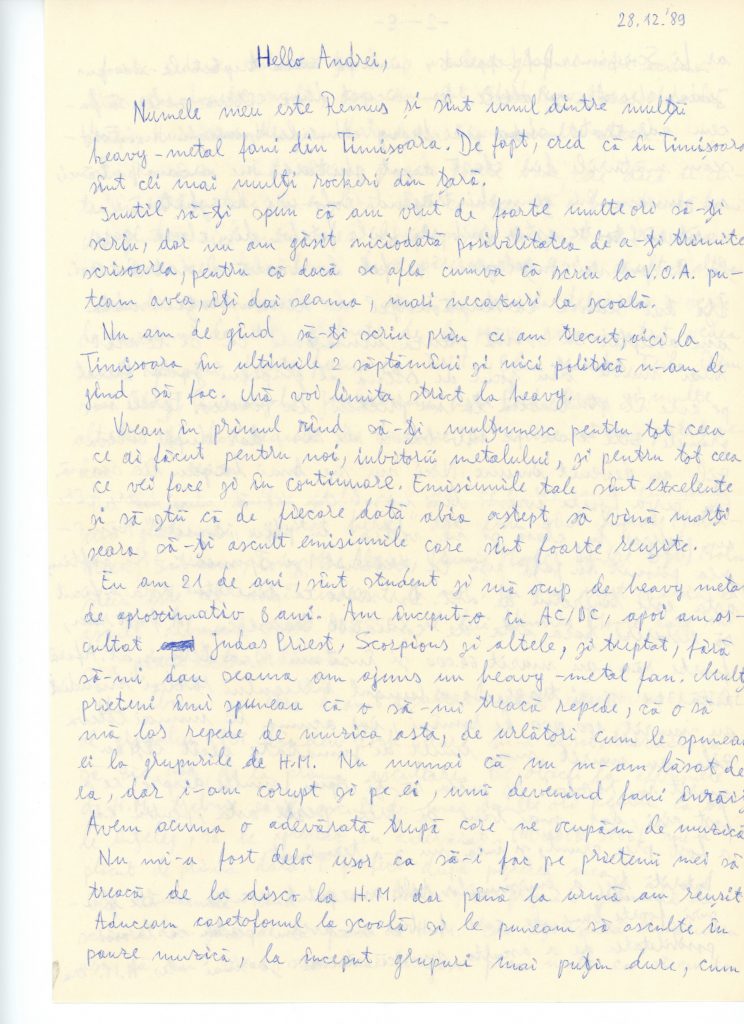 28.12.'89
Hello Andrei,
Numele meu este Remus și sînt unul dintre mulții
heavy-metal fani din Timișoara. De fapt, cred că în Timișoara
sînt cei mai mulți rockeri din țară.
Inutil să-ți spun că am vrut de foarte multe ori să-ți
scriu, dar nu am găsit niciodată posibilitatea de a-ți trimite
scrisoarea, pentru că dacă se afla cumva că scriu la V.O.A. pu-
team avea, îți dai seama, mari necazuri la școală.
Nu am de gînd să-ți scriu prin ce am trecut, aici la
Timișoara în ultimile 2 săptămîni și nici politică n-am de
gînd să fac. Mă voi limita strict la heavy.
Vreau în primul rînd să-ți mulțumesc pentru tot ceea
ce ai făcut pentru noi, iubitorii metalului, și pentru tot ceea
ce vei face și în continuare. Emisiunile tale sînt excelente
și să știi că de fiecare dată abia aștept să vină marți
seara să-ți ascult emisiunile care sînt foarte reușite.
Eu am 21 de ani, sînt student și mă ocup de heavy meta
de aproximativ 8 ani. Am început-o cu AC/DC, apoi am as-
cultat Judas Priest, Scorpions și altele, și treptat, fără
să-mi dau seama am ajuns un heavy-metal fan. Mulți
prieteni îmi spuneau că o să-mi treacă repede, că o să
mă las repede de muzica asta, de urlători cum le spuneau
ei la grupurile de H.M. Nu numai că nu m-am lăsat de
ea, dar i-am corupt și pe ei, unii devenind fani înrăiți
Avem acuma o adevărată trupă care ne ocupăm de muzică
Nu mi-a fost deloc ușor ca să-i fac pe prietenii mei să
treacă de la disco la H.M. dar pînă la urmă am reușit
Aduceam casetofonul la școală și le puneam să asculte în
pauze muzică, la început grupuri mai puțin dure, cum